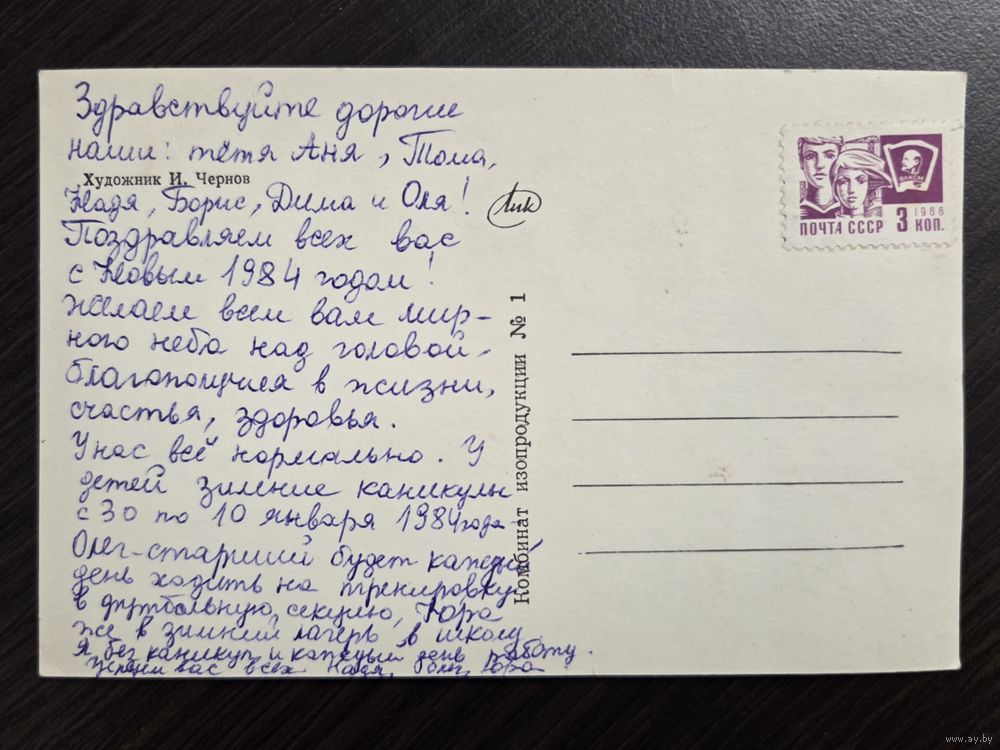 Здравствуйте дорогие
наши: тётя Аня, Тома,
Художник И. Чернов
Надя, Борис, Дима и Оля!
Поздравляем всех вас
с Новым 1984 годом!
Желаем всем вам мир-
ного неба над головой,
благополучия в жизни,
счастья, здоровья.
У нас всё нормально. У
детей зимние каникулы
с 30 по 10 января 1984 года.
Олег-старший будет каждый
день ходить на тренировку
в футбольную секцию, Юра
же в зимний лагерь в школу
Я без каникул и каждый день на работу.
Целуем вас всех Надя, Олег, Юра
Лик
Комбинат изопродукции № 1
ВЛКСМ
1966
ПОЧТА СССР 3 КОП.
www.ay.by